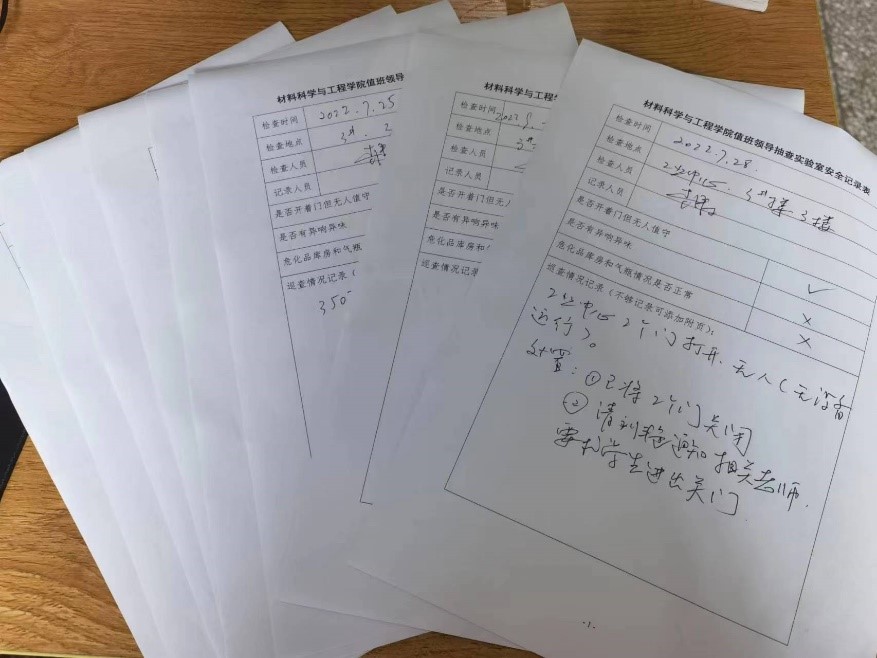 材料科学与工程学院值班领导
检查时间 2022.7.25
检查地点 3#. 2
检查人员
记录人员
是否开着门但无人值守
是否有异响异味
危化品库房和气瓶
巡查情况记录(
350
材料科学与工程
检查时间
检查地点 3#
检查人员
记录人员
是否开着门但无人
是否有异响异味
危化品库房和
巡查情况记录
材料科学与工程学院值班领导抽查实验室安全记录表
检查时间 2022.7.28.
检查地点 中心. 3#楼3楼
检查人员
记录人员
是否开着门但无人值守 ✓
是否有异响异味 ×
危化品库房和气瓶情况是否正常 ×
巡查情况记录(不够记录可添加附页):
中心2个门打开. 无人(无设备
运行)。
处置:①已将2个门关闭
②请刘艳通知相关老师.
要求学生进出关门
-1-